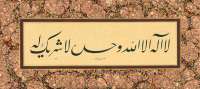 لا اله الا الله وحده لا شریک له